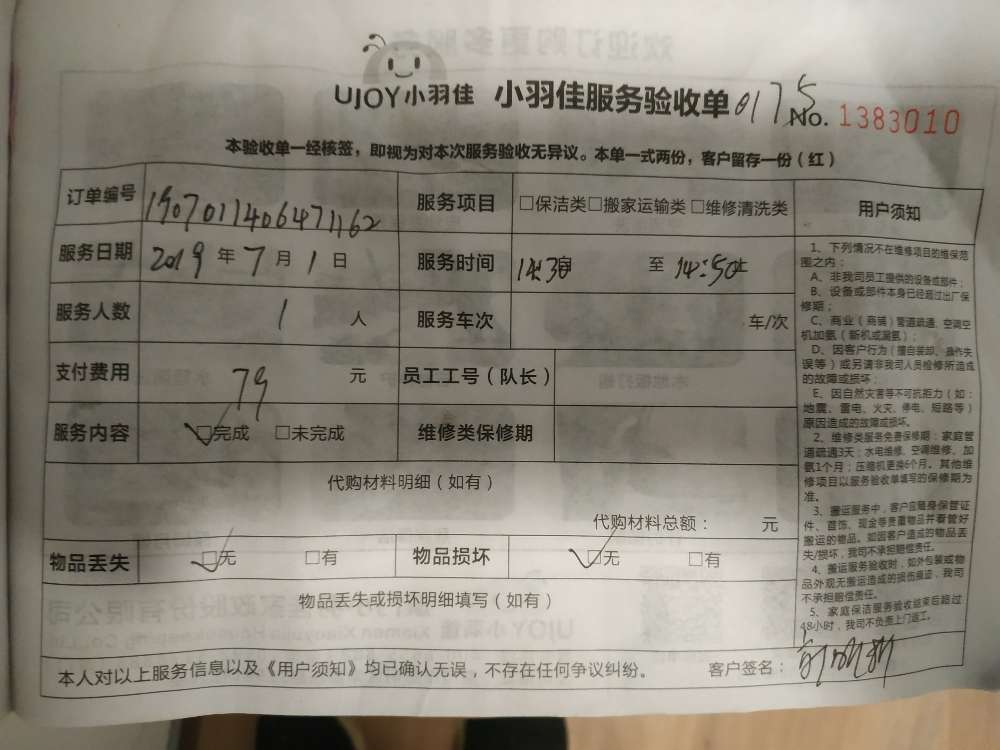 UJOY小羽佳 小羽佳服务验收单 0175 No. 1383010
本验收单一经核签，即视为对本次服务验收无异议。本单一式两份，客户留存一份（红）
订单编号 服务项目 □保洁类□搬家运输类□维修清洗类 用户须知
服务日期 2019 年 7 月 1 日 服务时间 至 14:50
服务人数 1 人 服务车次 车/次
支付费用 79 元 员工工号（队长）
服务内容 □完成 □未完成 维修类保修期
代购材料明细（如有）
代购材料总额： 元
物品丢失 □无 □有 物品损坏 □无 □有
物品丢失或损坏明细填写（如有）
1、下列情况不在维修项目的维保范
围之内：
A、非我司员工提供的设备或部件；
B、设备或部件本身已经超过出厂保
修期；
C、商业（商铺）管道疏通、空调空
机加氨（新机或漏氨）；
D、因客户行为（擅自装卸、操作失
误等）或另请非我司人员检修所造成
的故障或损坏；
E、因自然灾害等不可抗拒力（如：
地震、雷电、火灾、停电、短路等）
原因造成的故障或损坏。
2、维修类服务免费保修期：家庭管
道疏通3天；水电维修、空调维修、加
氨1个月；压缩机更换6个月。其他维
修项目以服务验收单填写的保修期为
准。
3、搬运服务中，客户应随身保管证
件、首饰、现金等贵重物品并看管好
搬运的物品。如因客户造成的物品丢
失/损坏，我司不承担赔偿责任。
4、搬运服务验收时，如外包装或物
品外观无搬运造成的损伤痕迹，我司
不承担赔偿责任。
5、家庭保洁服务验收结束后超过
48小时，我司不负责上门返工。
本人对以上服务信息以及《用户须知》均已确认无误，不存在任何争议纠纷。 客户签名：